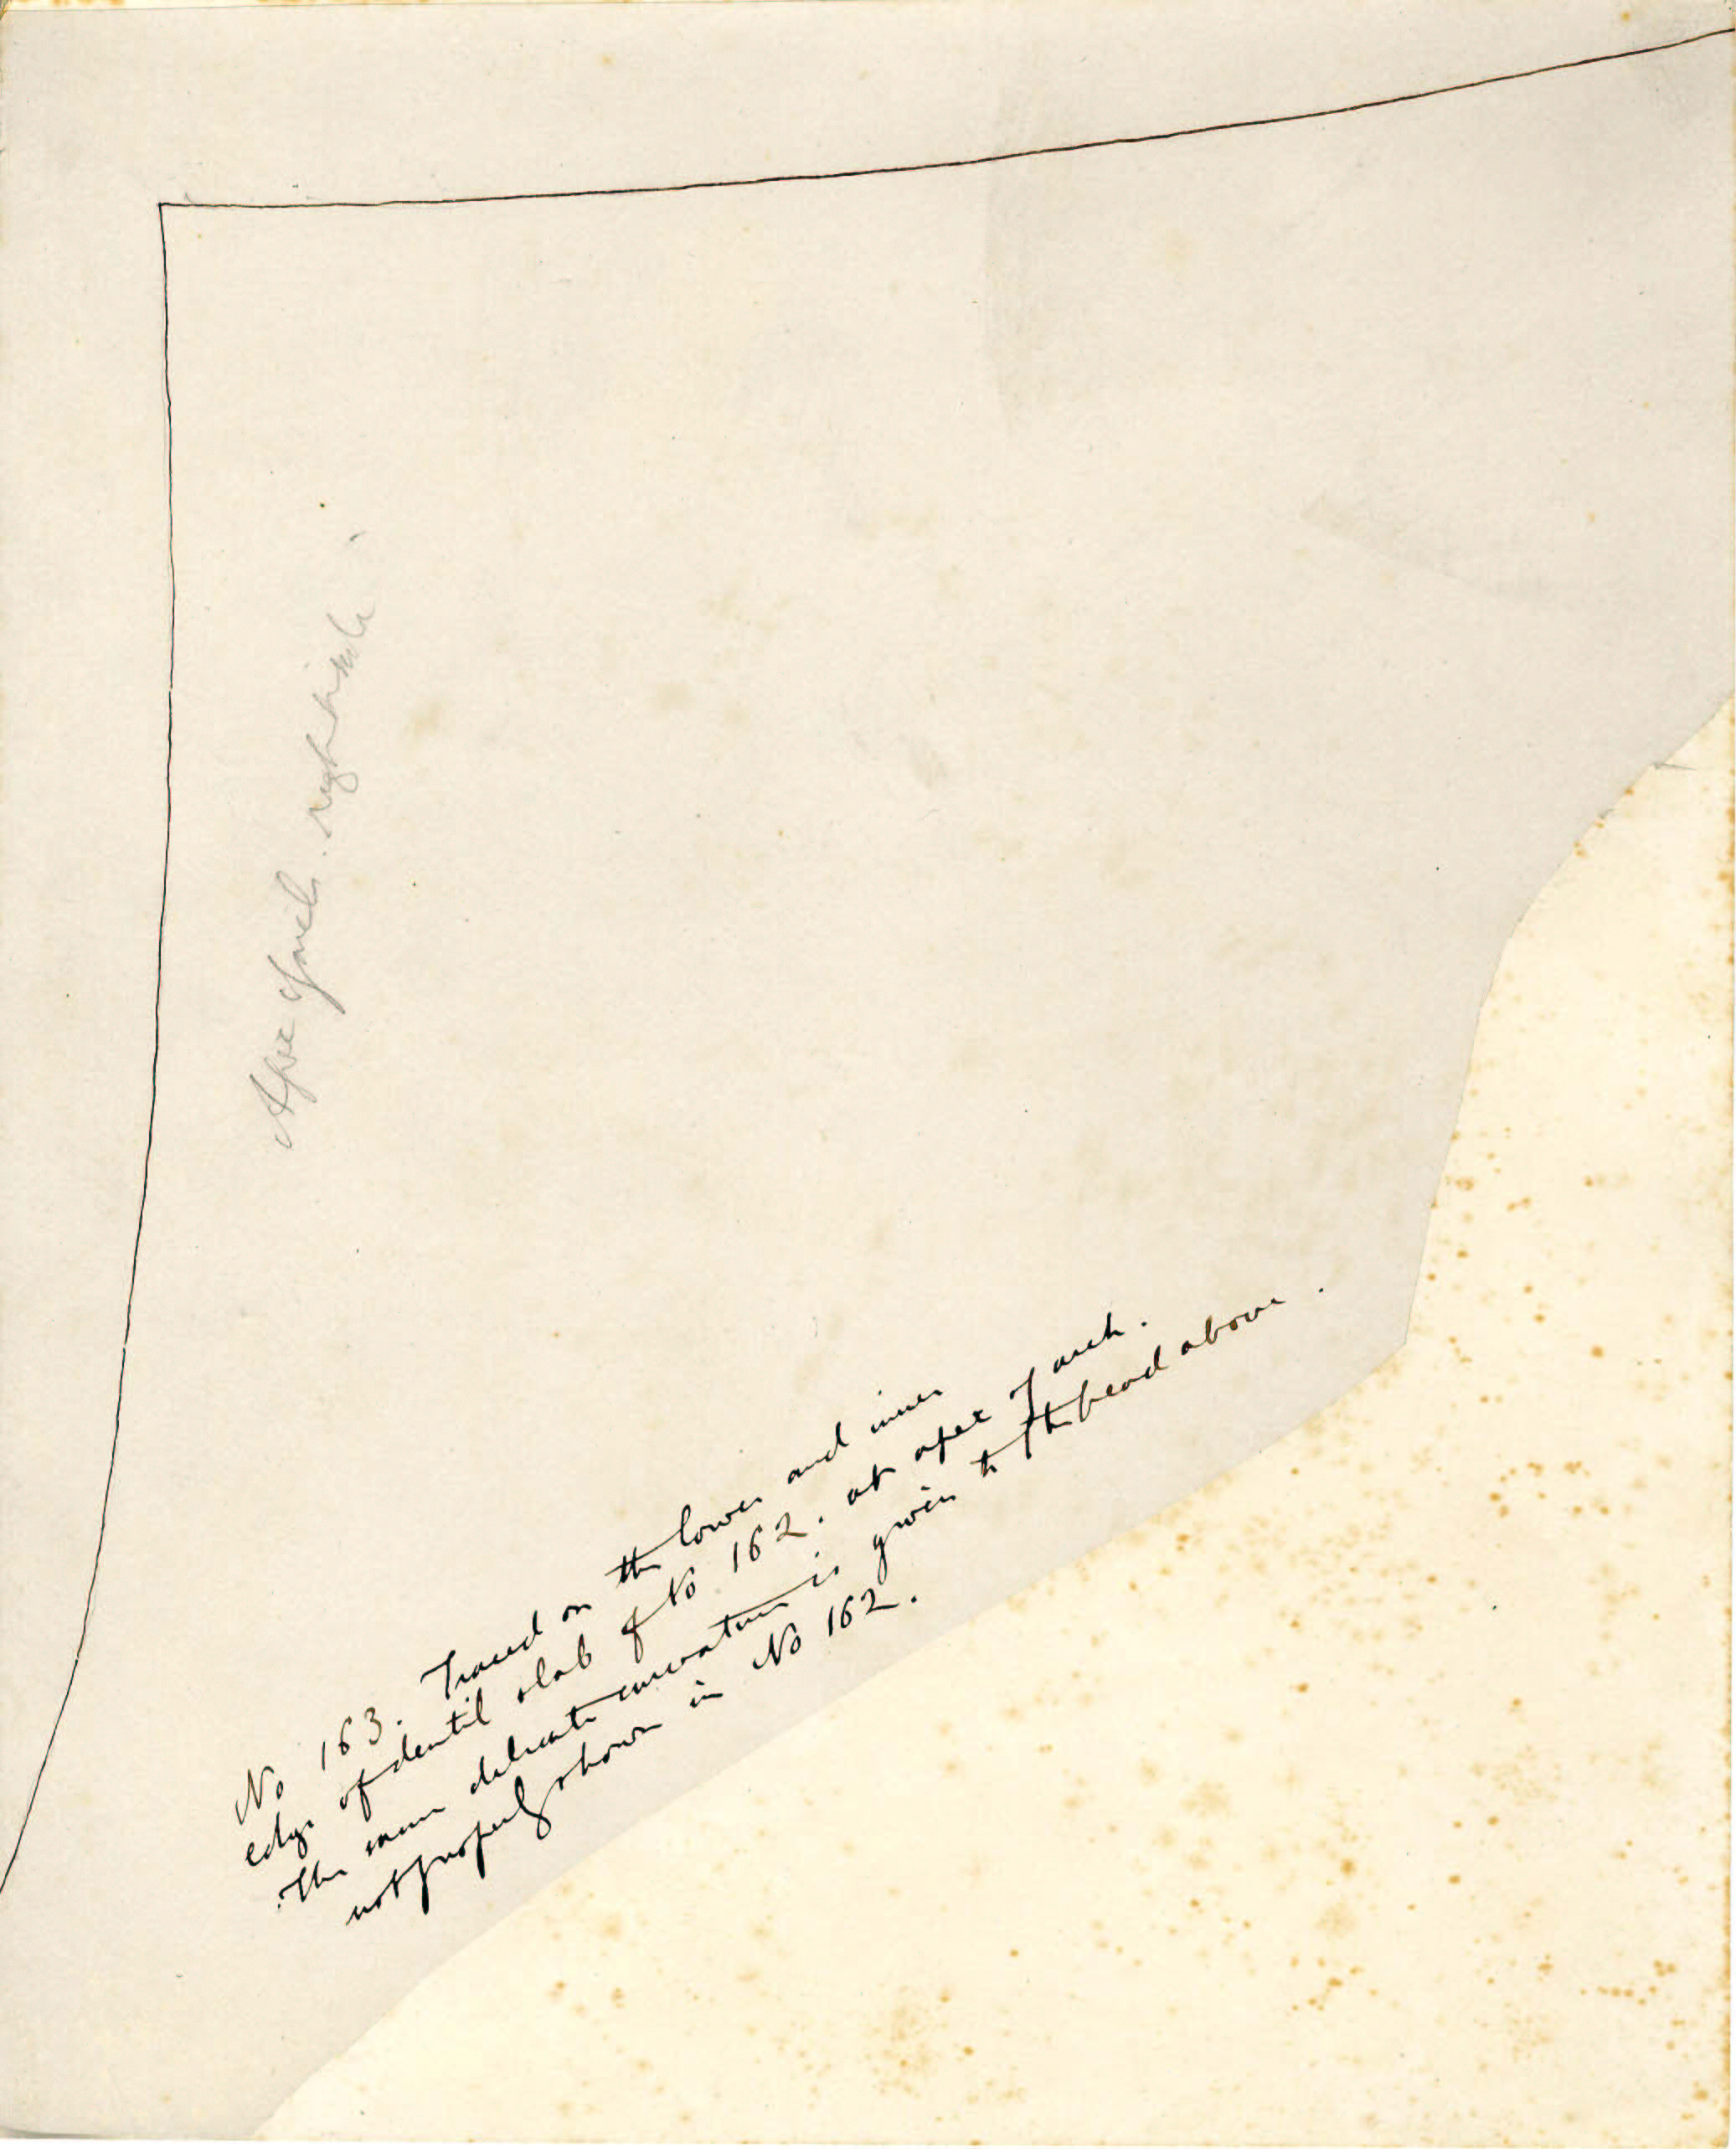 Apex of arch. right side.
No 163. Traced on the lower and inner
edge of dentil slab of No 162. at apex of arch.
The same delicate curvature is given to the bead above.
not properly shown in No 162.